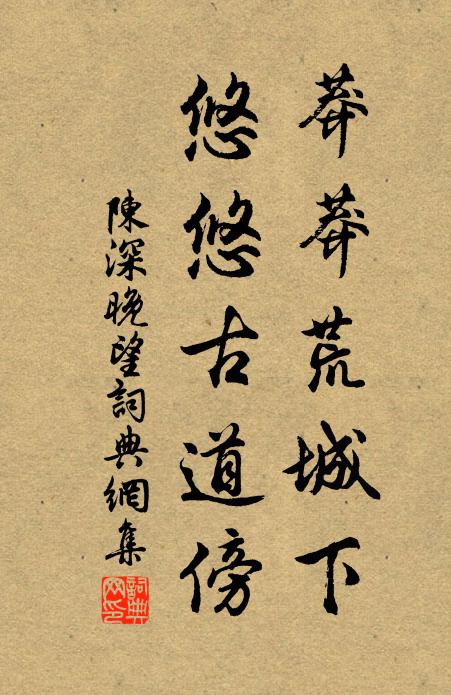 莽莽荒城下
悠悠古道傍
陳深晚望詞典網集
詞典網印